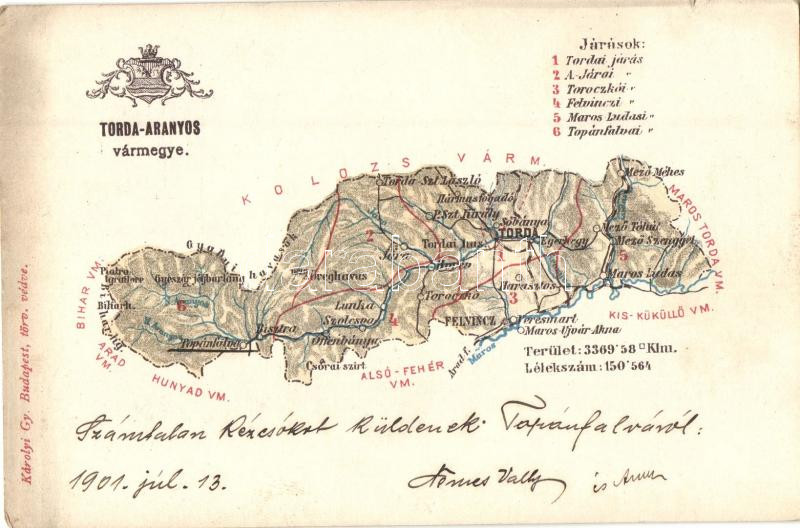 TORDA-ARANYOS
vármegye.
Járások:
1 Tordai járás
2 A.-Járai "
3 Toroczkói "
4 Felvinczi "
5 Maros Ludasi "
6 Topánfalvai "
KOLOZS VÁRM.
MAROS TORDA VM.
KIS-KÜKÜLLŐ VM.
ALSÓ-FEHÉR
VM.
HUNYAD VM.
ARAD
VM.
BIHAR VM.
Gyalui havasok
Biharhg.
Torda Szt. László
Mező Méhes
P. Szt. Király
Sóbánya
TORDA
Tordai has.
Egerbegy
Mező Tóhát
Mező Szengyel
Jára
Öreghavas
Gyészár jégbarlang
Biharh.
Maros Ludas
Marasztos
Toroczkó
Lunka
Szolcsva
Offenbánya
Bisztra
Topánfalva
Csórai szirt
FELVINCZ
Veresmart
Maros-Ujvár-Akna
Arad f.
Maros
1
2
3
4
5
6
Terület: 3369'58 □ Klm.
Lélekszám: 150'564
Károlyi Gy. Budapest, törv. védve.
Számtalan kézcsókot küldenek Topánfalváról:
1901. júl. 13.
Nemes Vally
és